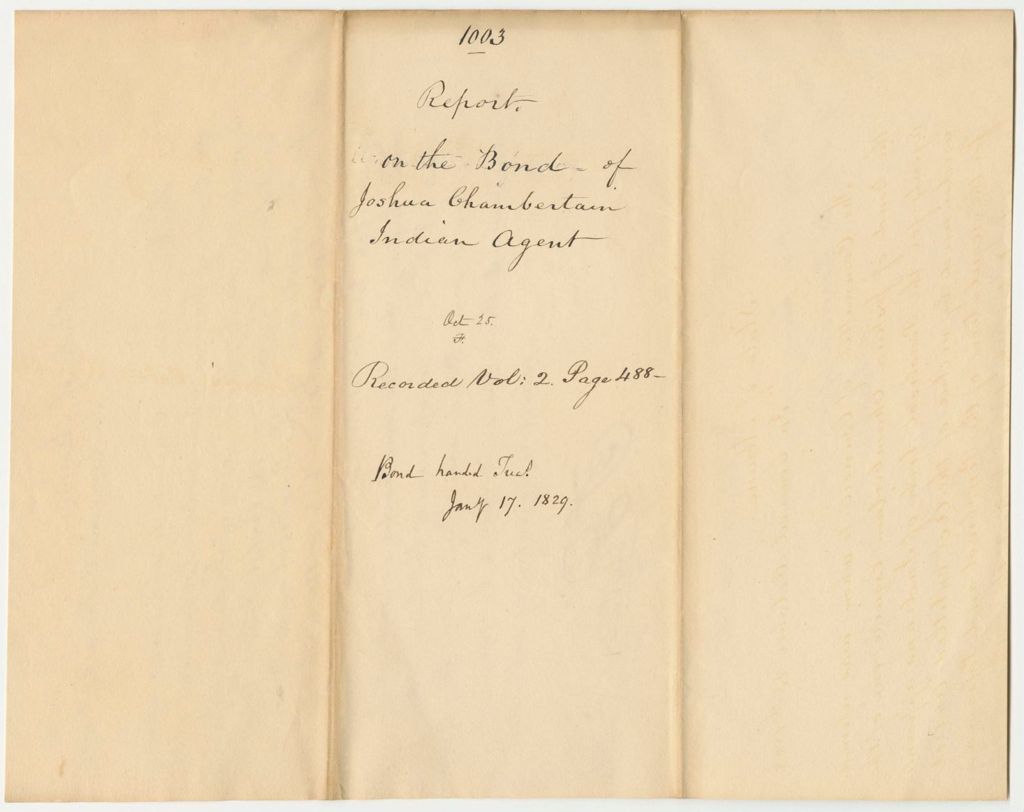 1003
Report.
on the Bond - of
Joshua Chamberlain
Indian Agent
Oct 25.
Recorded Vol: 2. Page 488-
Bond handed
Jany 17. 1829.